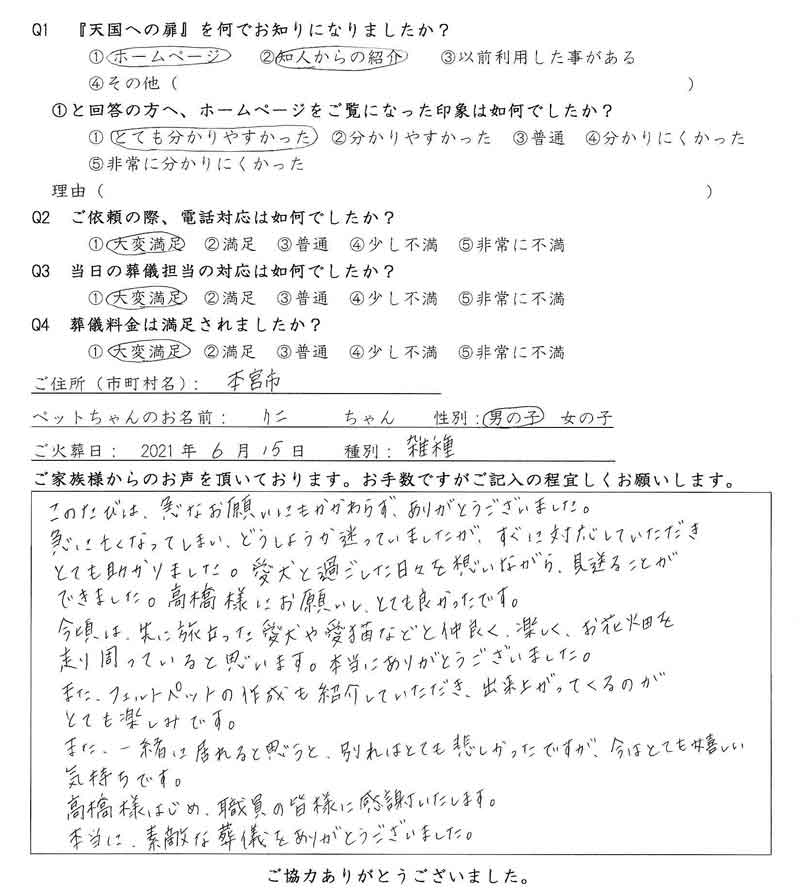 Q1 『天国への扉』を何でお知りになりましたか?
①ホームページ ②知人からの紹介 ③以前利用した事がある
④その他( )
①と回答の方へ、ホームページをご覧になった印象は如何でしたか?
①とても分かりやすかった ②分かりやすかった ③普通 ④分かりにくかった
⑤非常に分かりにくかった
理由( )
Q2 ご依頼の際、電話対応は如何でしたか?
①大変満足 ②満足 ③普通 ④少し不満 ⑤非常に不満
Q3 当日の葬儀担当の対応は如何でしたか?
①大変満足 ②満足 ③普通 ④少し不満 ⑤非常に不満
Q4 葬儀料金は満足されましたか?
①大変満足 ②満足 ③普通 ④少し不満 ⑤非常に不満
ご住所(市町村名): 本宮市
ペットちゃんのお名前: クニ ちゃん 性別:男の子 女の子
ご火葬日: 2021年 6月 15日 種別: 雑種
ご家族様からのお声を頂いております。お手数ですがご記入の程宜しくお願いします。
このたびは、急なお願いにもかかわらず、ありがとうございました。
急に亡くなってしまい、どうしようか迷っていましたが、すぐに対応していただき
とても助かりました。愛犬と過ごした日々を想いながら、見送ることが
できました。高橋様にお願いし、とても良かったです。
今頃は、先に旅立った愛犬や愛猫などと仲良く、楽しく、お花畑を
走り周っていると思います。本当にありがとうございました。
また、フェルトペットの作成も紹介していただき、出来上がってくるのが
とても楽しみです。
また、一緒に居れると思うと、別れはとても悲しかったですが、今はとても嬉しい
気持ちです。
高橋様はじめ、職員の皆様に感謝いたします。
本当に、素敵な葬儀をありがとうございました。
ご協力ありがとうございました。